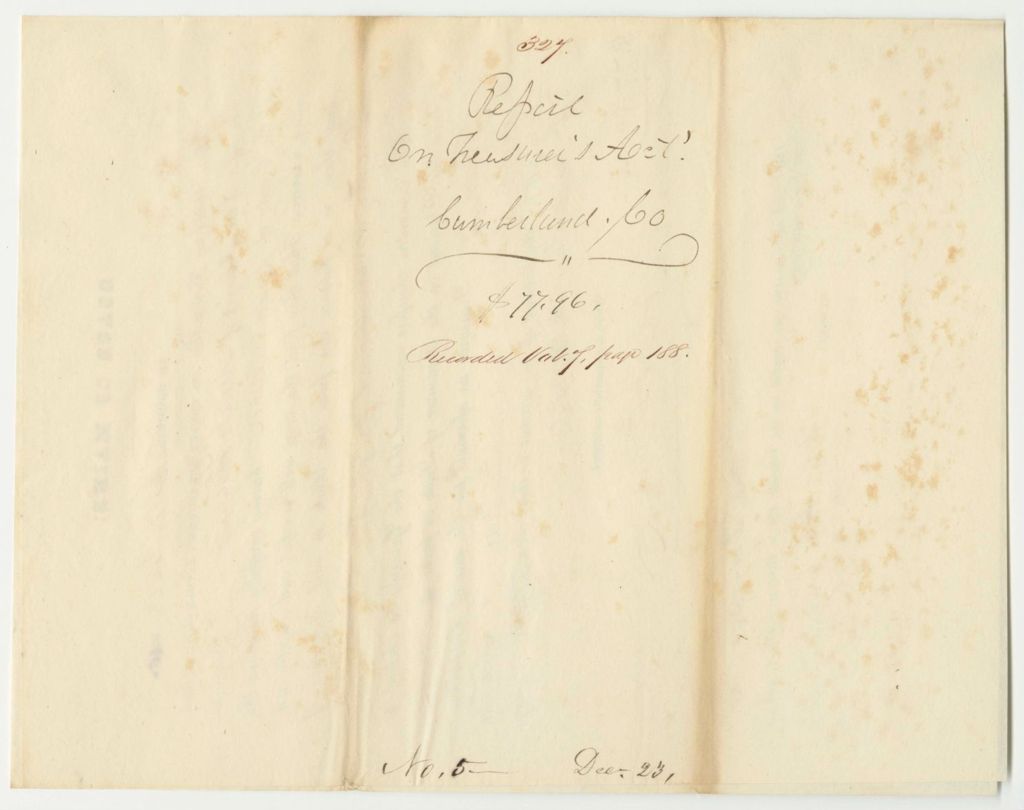 327.
Report
On Treasurer's Act.
Cumberland. Co
"
$77.96.
Recorded Vol. 7, page 188.
No. 5— Dec. 23,